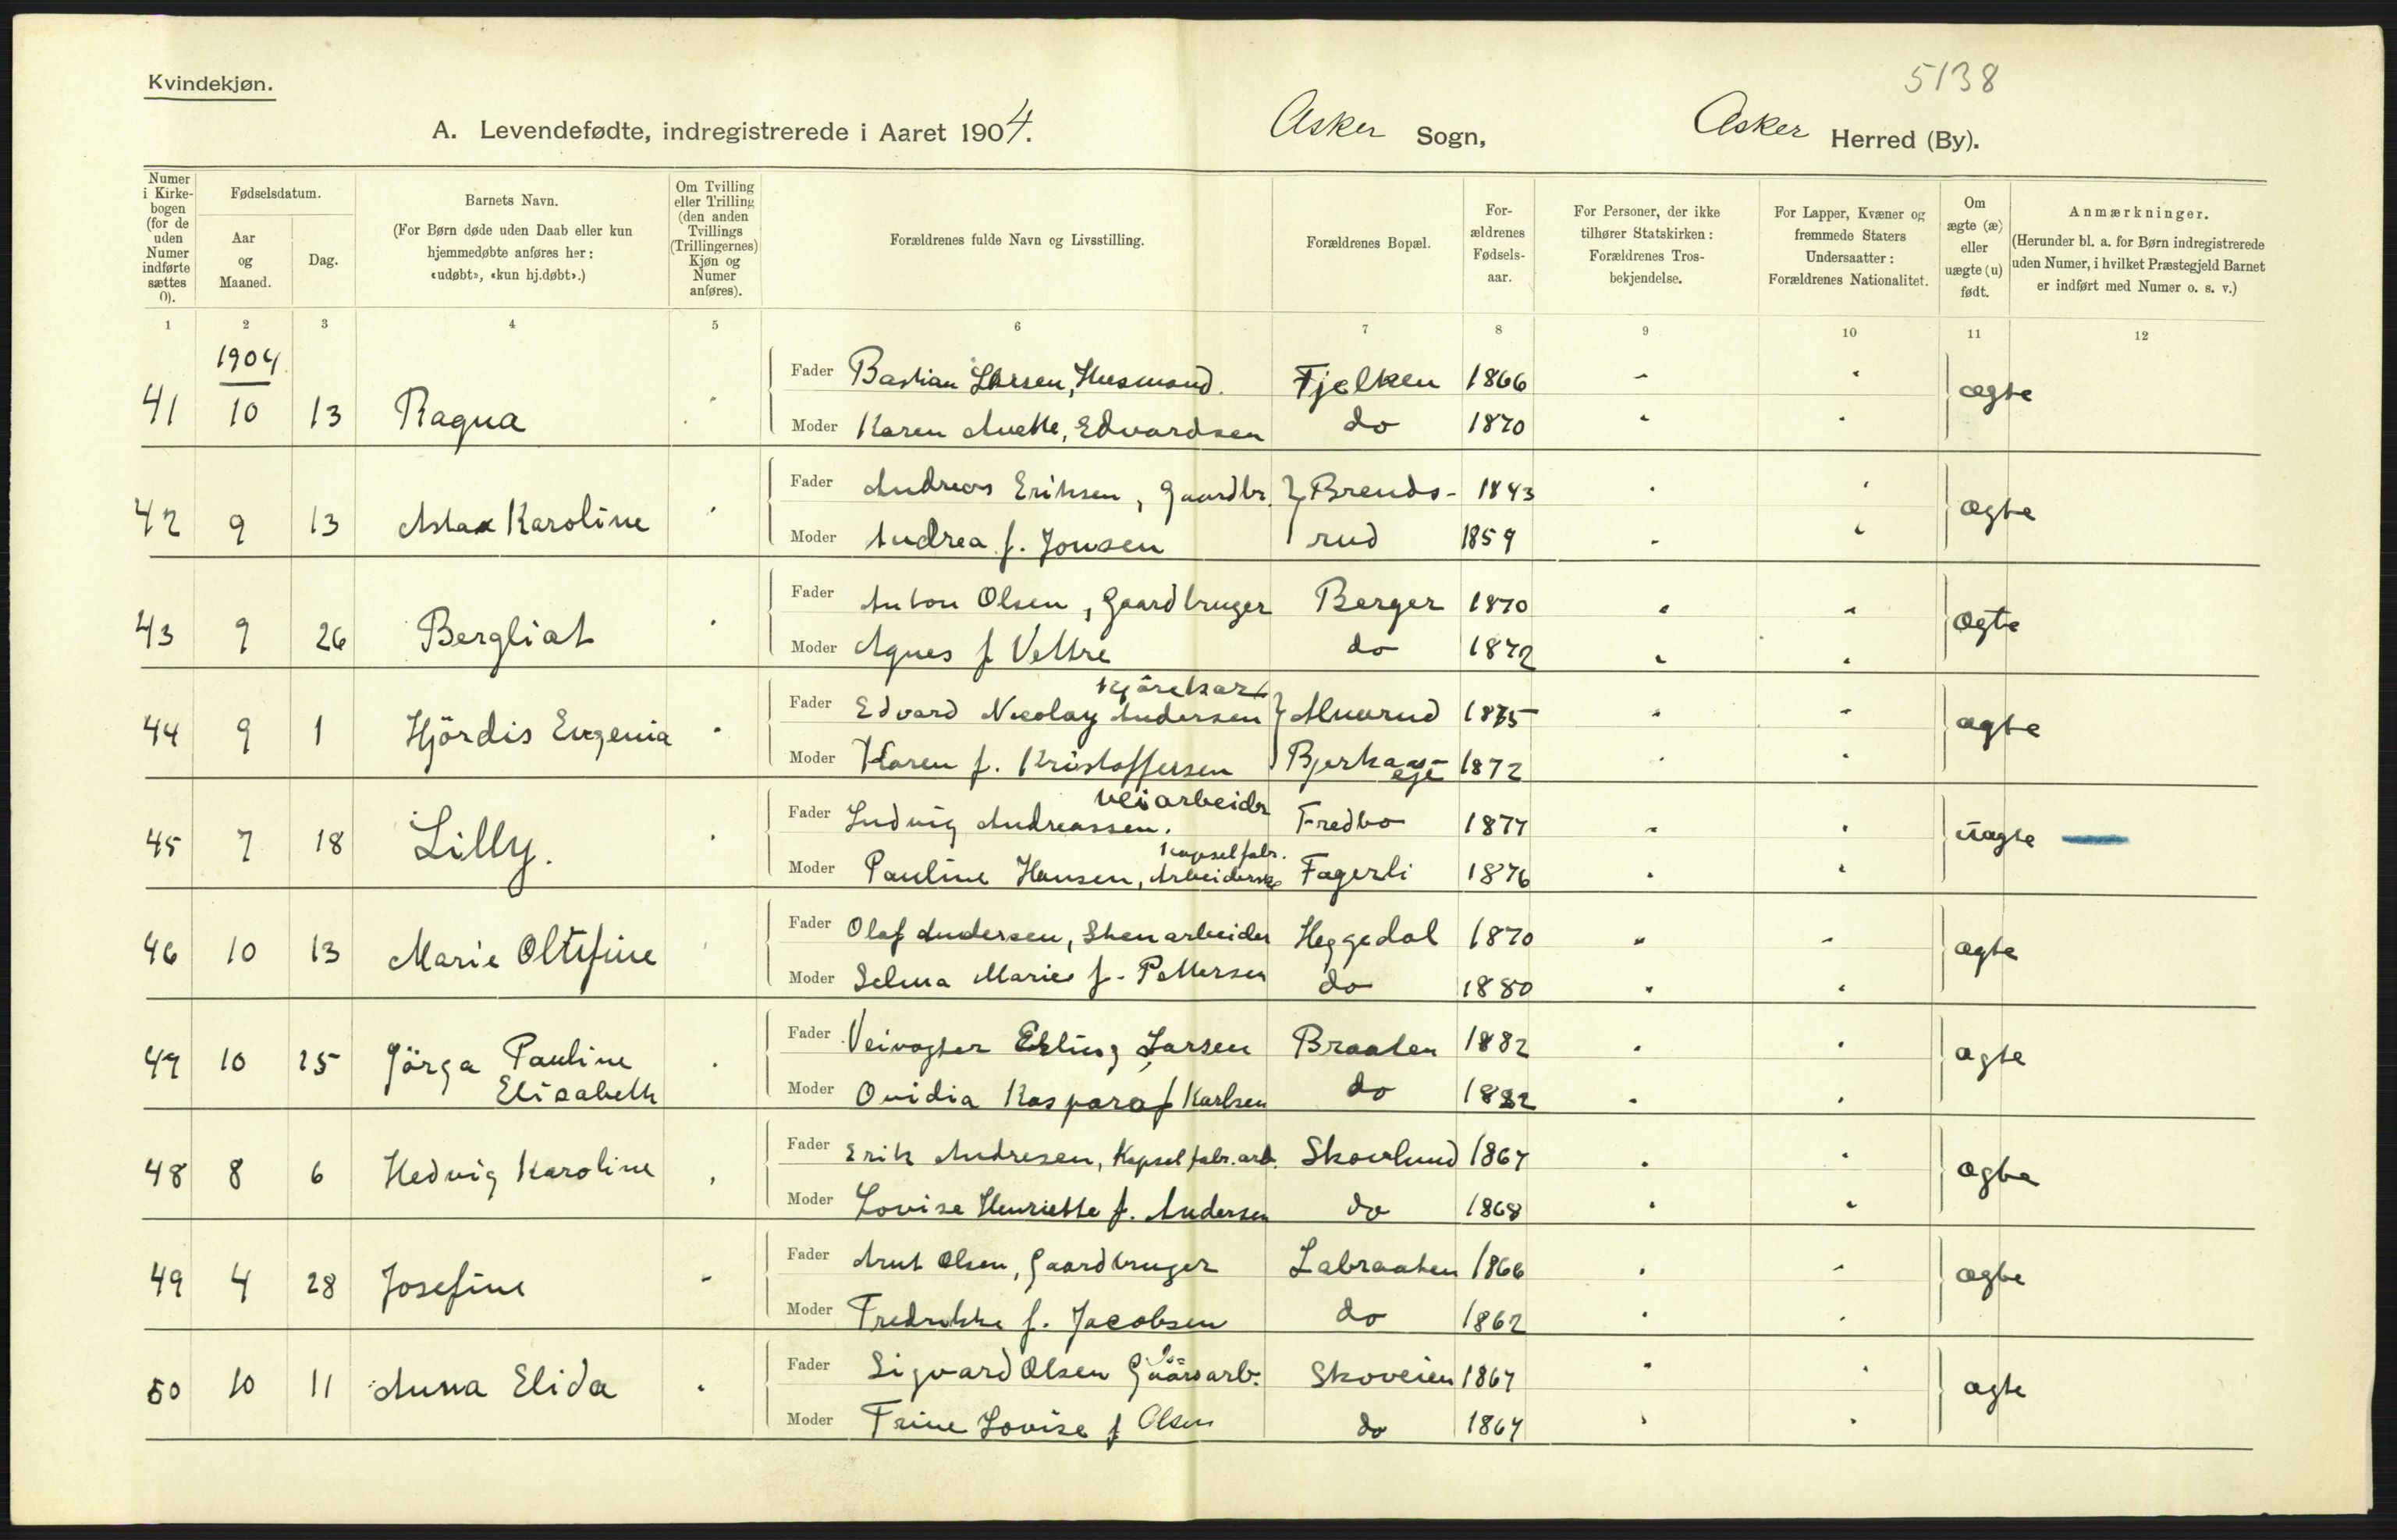 5138
Kvindekjøn.
A. Levendefødte, indregistrerede i Aaret 1904. Asker Sogn, Asker Herred (By).
Numer i Kirkebogen (for de uden Numer indførte sættes 0).
Fødselsdatum.
Aar og Maaned.
Dag.
Barnets Navn.
(For Børn døde uden Daab eller kun hjemmedøbte anføres her: «udøbt», «kun hj.døbt».)
Om Tvilling eller Trilling (den anden Tvillings (Trillingernes) Kjøn og Numer anføres).
Forældrenes fulde Navn og Livsstilling.
Forældrenes Bopæl.
Forældrenes Fødselsaar.
For Personer, der ikke tilhører Statskirken: Forældrenes Trosbekjendelse.
For Lapper, Kvæner og fremmede Staters Undersaatter: Forældrenes Nationalitet.
Om ægte (æ) eller uægte (u) født.
Anmærkninger.
(Herunder bl. a. for Børn indregistrerede uden Numer, i hvilket Præstegjeld Barnet er indført med Numer o. s. v.)
1 2 3 4 5 6 7 8 9 10 11 12
1904
41 10 13 Ragna Fader Bastian Larsen, Husmand. Fjelken 1866 ægte
Moder Karen Anette, Edvardsen do 1870
42 9 13 Asta Karoline Fader Andreas Eriksen, Gaardbr. Brends- 1843 ægte
Moder Andrea f. Jonsen rud 1859
43 9 26 Bergliot Fader Anton Olsen, Gaardbruger Berger 1870 ægte
Moder Agnes f Vettre do 1872
44 9 1 Hjördis Eugenia Fader Edvard Nicolay Andersen Kjörekar 1875 ægte
Moder Karen f. Kristoffersen 1872
45 7 18 Lilly. Fader Ludvig Andreassen. Veiarbeider Fredbo 1877 uægte
Moder Pauline Hansen, Kapselfabr. Arbeiderske Fagerli 1876
46 10 13 Marie Oltifine Fader Olaf Andersen, Stenarbeider Heggedal 1870 ægte
Moder Selma Marie f. Pettersen do 1880
47 10 25 Jörga Pauline Elisabeth Fader Veivogter Erling Larsen Braaten 1882 ægte
Moder Ovidia Kaspara f Karlsen do 1882
48 8 6 Hedvig Karoline Fader Erik Andresen, Kapselfabr. arb. Skovlund 1867 ægte
Moder Lovise Henriette f. Andersen do 1868
49 4 28 Josefine Fader Arnt Olsen, Gaardbruger Labraaten 1866 ægte
Moder Fredrikke f. Jacobsen do 1862
50 10 11 Anna Elida Fader Sigvard Olsen Gaardsarb. Skoveien 1867 ægte
Moder Trine Lovise f Olsen do 1867